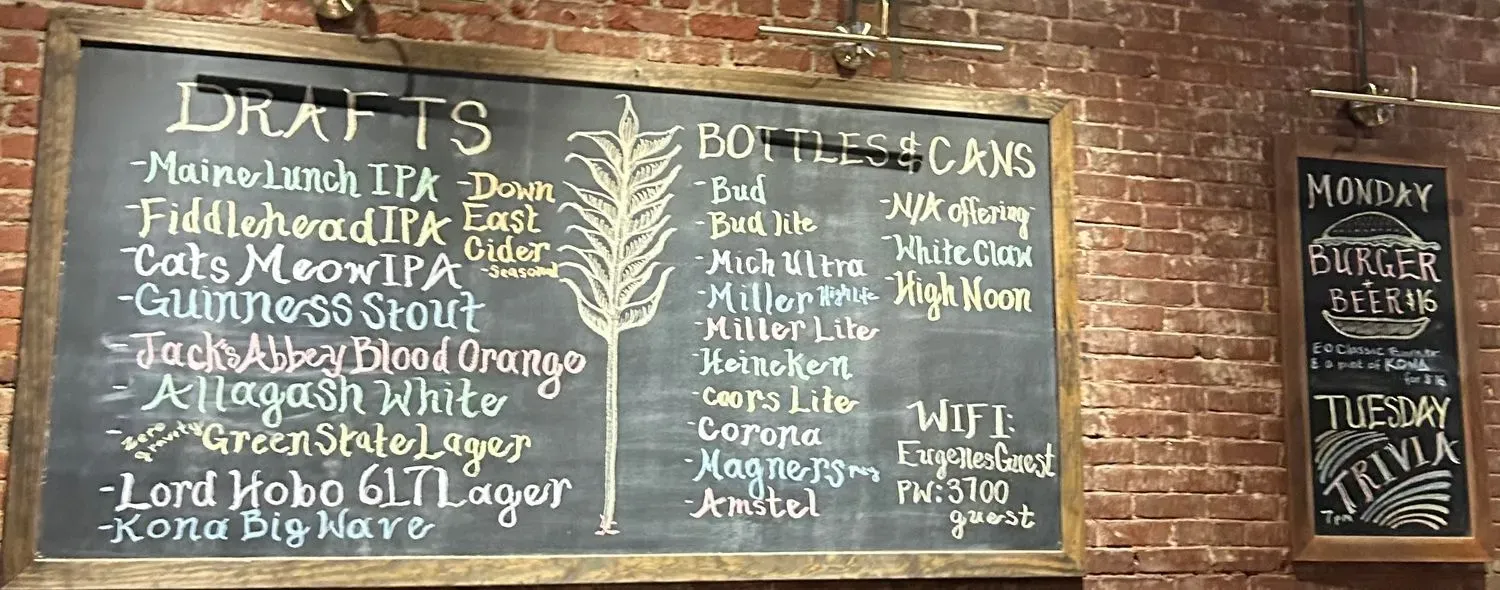 DRAFTS
-Maine Lunch IPA
-Fiddlehead IPA
-Cats Meow IPA
-Guinness Stout
-Jack's Abbey Blood Orange
-Allagash White
-Zero Gravity Green State Lager
-Lord Hobo 617 Lager
-Kona Big Wave
-Down
East
Cider
-Seasonal
BOTTLES & CANS
-Bud
-Bud lite
-Mich Ultra
-Miller High Life
-Miller Lite
-Heineken
-Coors Lite
-Corona
-Magners
-Amstel
-N/A offering
-White Claw
-High Noon
WIFI:
EugenesGuest
PW: 3700
guest
MONDAY
BURGER
+
BEER $16
EO Classic Burger
& a pint of KONA
for $16
TUESDAY
TRIVIA
7pm